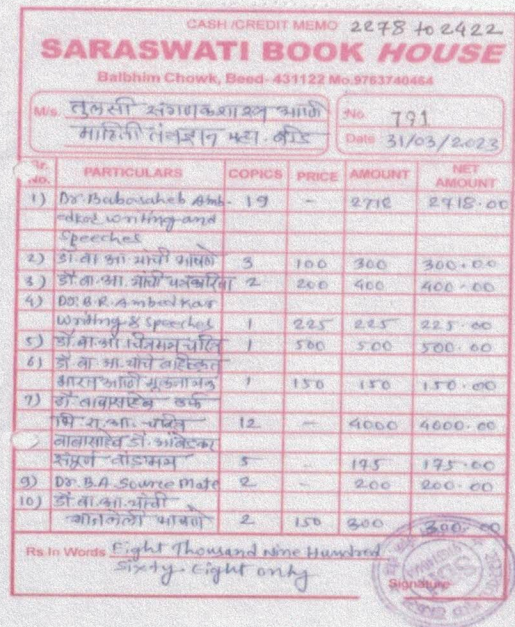 CASH /CREDIT MEMO 2278 to 2422
SARASWATI BOOK HOUSE
Balbhim Chowk, Beed- 431122 Mo.9763740464
M/s. तुलसी संगणकशास्त्र आणि
माहिती तंत्रज्ञान महा. बीड
No. 791
Date 31/03/2023
Sr. No. PARTICULARS COPICS PRICE AMOUNT NET AMOUNT
1) Dr. Babasaheb Amb- 19 - 2718 2718.00
edkar writing and
Speeches
2) डॉ. बा. आ. यांची भाषणे 3 100 300 300.00
3) डॉ. बा. आ. यांची 2 200 400 400.00
4) Dr. B.R. Ambedkar
Writing & Speeches 1 225 225 225.00
5) डॉ. बा. आ. चित्रमय चरित्र 1 500 500 500.00
6) डॉ. बा. आ. यांचे बहिष्कृत
भारत आणि मूकनायक 1 150 150 150.00
7) डॉ. बाबासाहेब उर्फ
भि. रा. आ. चरित्र 12 - 4000 4000.00
बाबासाहेब डॉ. आंबेडकर
संपूर्ण वाङमय 5 - 175 175.00
9) Dr. B.A. Source Mate 2 - 200 200.00
10) डॉ. बा. आ. यांची
भाषणे 2 150 300 300.00
Rs.In Words Eight Thousand Nine Hundred
Sixty-Eight only
Signature